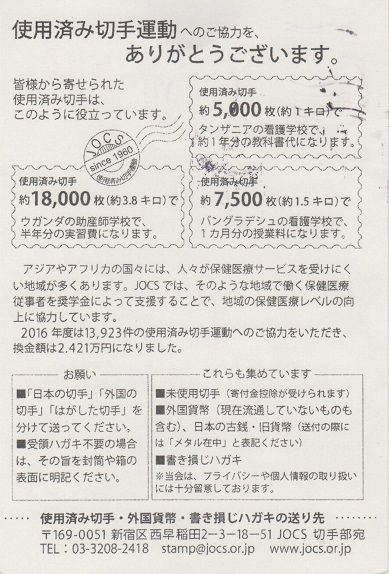 使用済み切手運動へのご協力を、
ありがとうございます。
皆様から寄せられた
使用済み切手は、
このように役立っています。
使用済み切手
約5,000枚(約1キロ)で
タンザニアの看護学校で、
約1年分の教科書代になります。
JOCS
since 1960
使用済み切手運動
使用済み切手
約18,000枚(約3.8キロ)で
ウガンダの助産師学校で、
半年分の実習費になります。
使用済み切手
約7,500枚(約1.5キロ)で
バングラデシュの看護学校で、
1カ月分の授業料になります。
アジアやアフリカの国々には、人々が保健医療サービスを受けにく
い地域が多くあります。JOCSでは、そのような地域で働く保健医療
従事者を奨学金によって支援することで、地域の保健医療レベルの向
上に協力しています。
2016年度は13,923件の使用済み切手運動へのご協力をいただき、
換金額は2.421万円になりました。
お願い
■「日本の切手」「外国の
切手」「はがした切手」を
分けて送ってください。
■受領ハガキ不要の場合
は、その旨を封筒や箱の
表面に明記ください。
これらも集めています
■未使用切手(寄付金控除が受けられます)
■外国貨幣(現在流通していないものも
含む)、日本の古銭・旧貨幣(送付の際に
は「メタル在中」と表記ください)
■書き損じハガキ
※当会は、プライバシーや個人情報の取り扱い
には十分留意しております。
使用済み切手・外国貨幣・書き損じハガキの送り先
〒169-0051 新宿区西早稲田2-3-18-51 JOCS 切手部宛
TEL: 03-3208-2418 stamp@jocs.or.jp www.jocs.or.jp